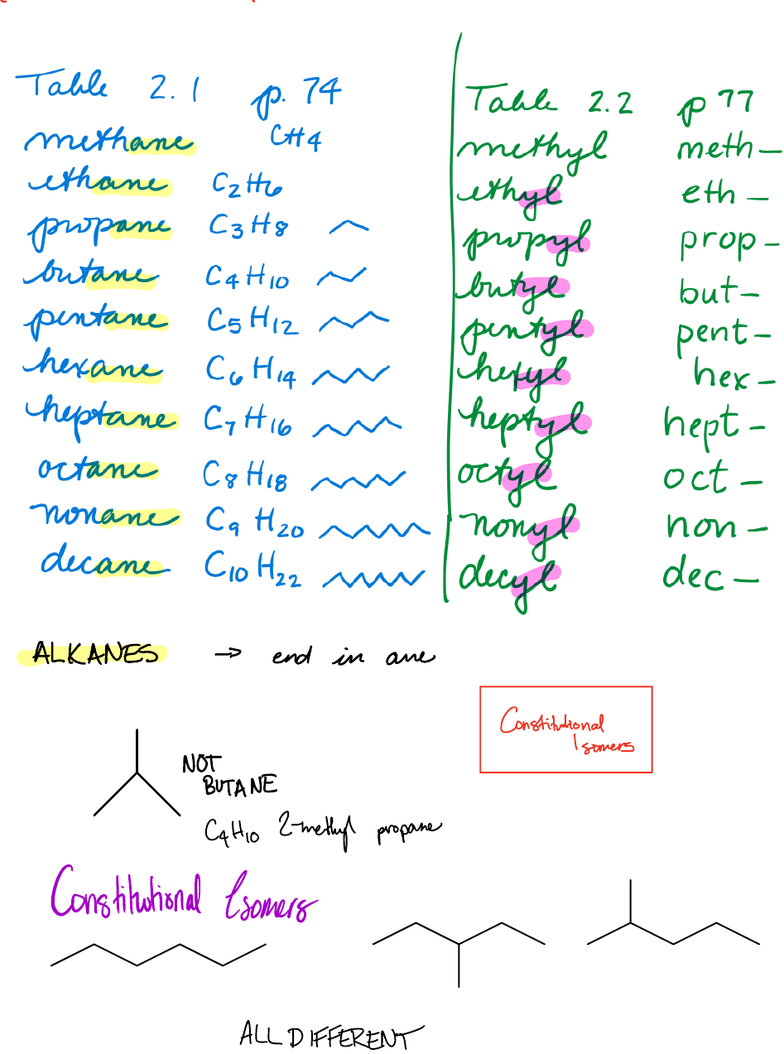 Table 2.1 p. 74
methane CH4
ethane C2H6
propane C3H8
butane C4H10
pentane C5H12
hexane C6H14
heptane C7H16
octane C8H18
nonane C9H20
decane C10H22
Table 2.2 p 77
methyl meth-
ethyl eth-
propyl prop-
butyl but-
pentyl pent-
hexyl hex-
heptyl hept-
octyl oct-
nonyl non-
decyl dec-
ALKANES → end in ane
Constitutional
Isomers
NOT
BUTANE
C4H10 2-methyl propane
Constitutional Isomers
ALL DIFFERENT